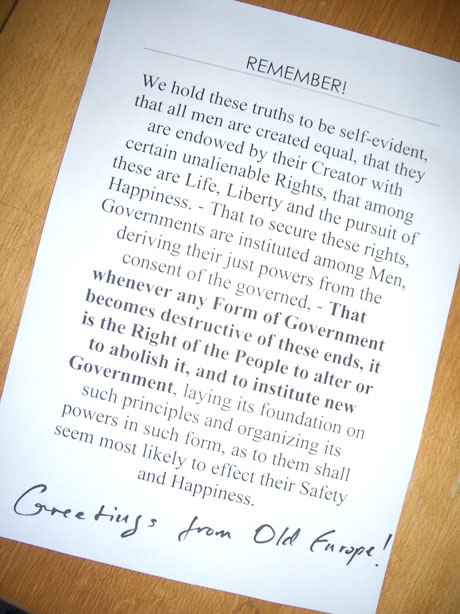 REMEMBER!
We hold these truths to be self-evident,
that all men are created equal, that they
are endowed by their Creator with
certain unalienable Rights, that among
these are Life, Liberty and the pursuit of
Happiness. - That to secure these rights,
Governments are instituted among Men,
deriving their just powers from the
consent of the governed, - That
whenever any Form of Government
becomes destructive of these ends, it
is the Right of the People to alter or
to abolish it, and to institute new
Government, laying its foundation on
such principles and organizing its
powers in such form, as to them shall
seem most likely to effect their Safety
and Happiness.
Greetings from Old Europe!